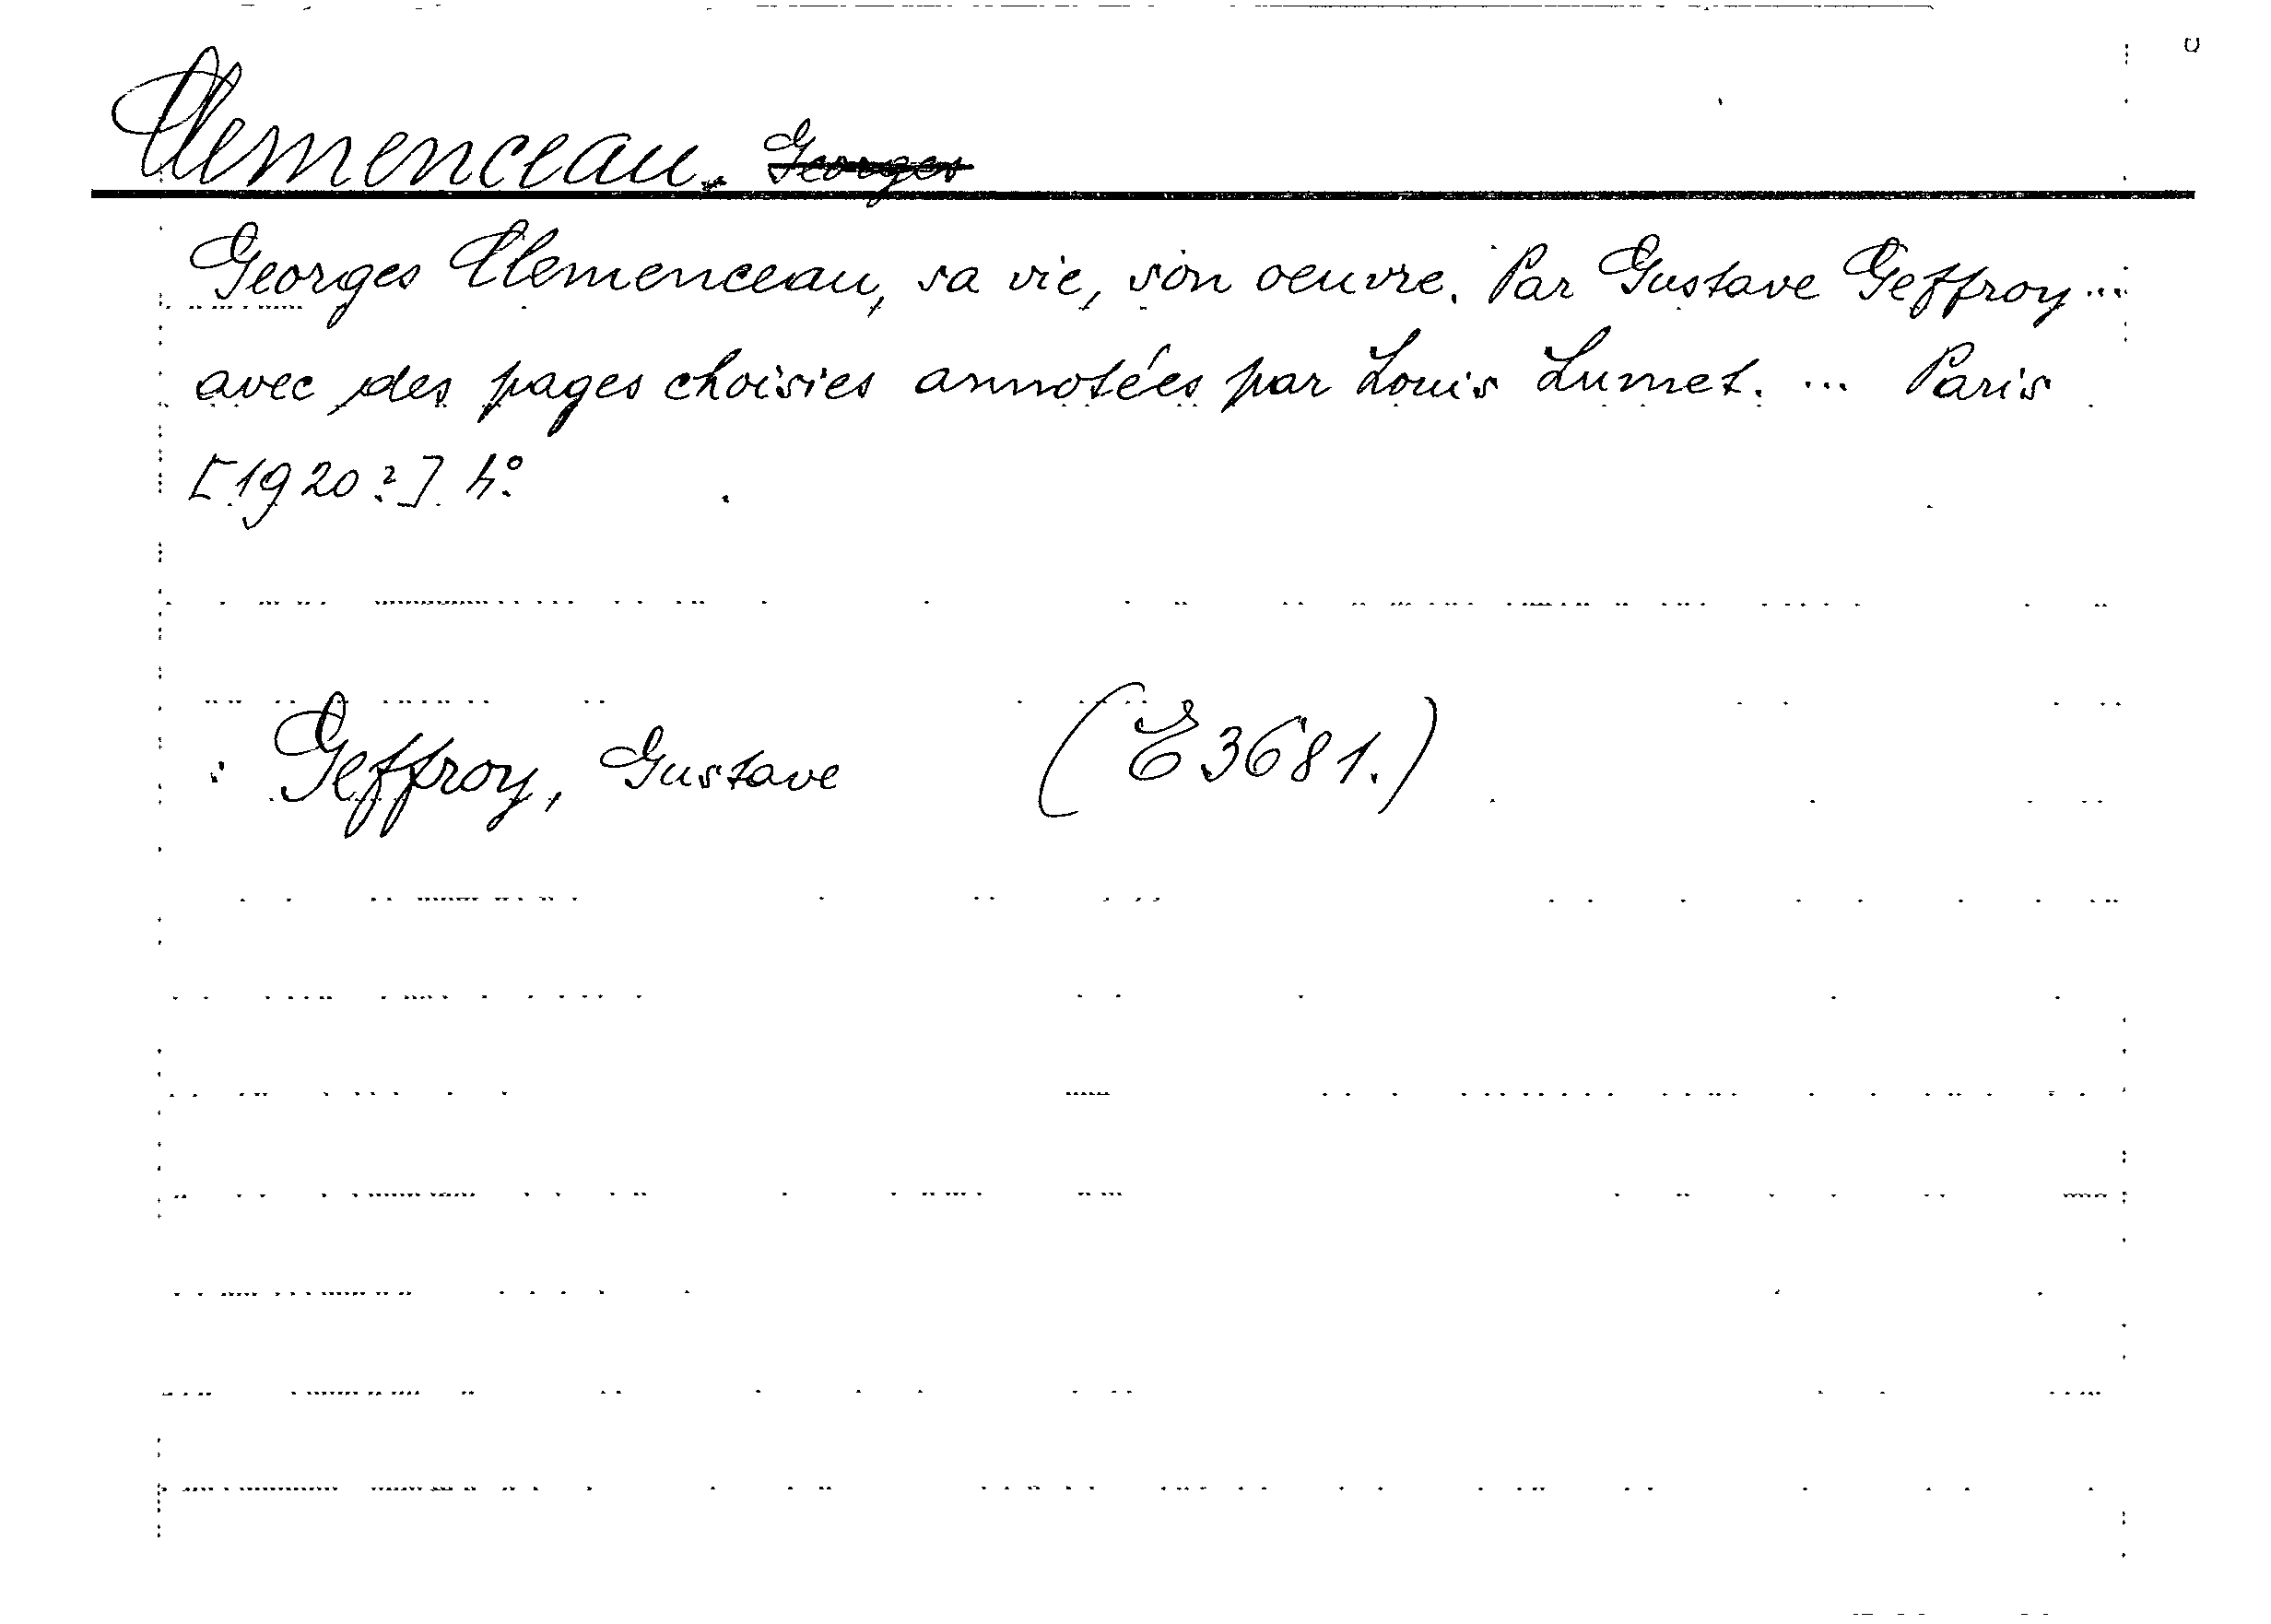 Clemenceau. Georges
Georges Clemenceau, sa vie, son oeuvre. Par Gustave Geffroy ...
avec des pages choisies annotées par Louis Lumet. ... Paris
[1920?] 4°
Geffroy, Gustave (E3681.)